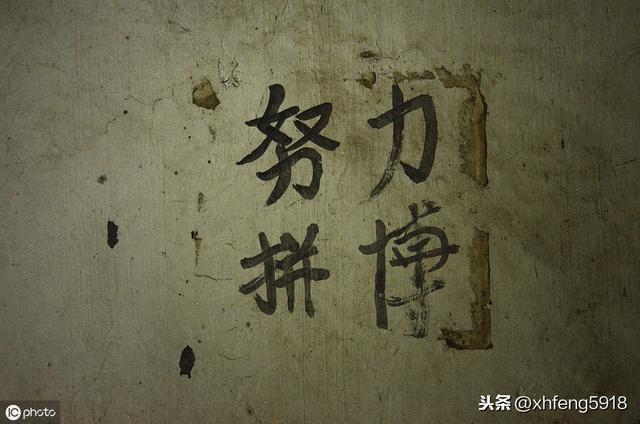 努力
拼博
iC photo
头条 @xhfeng5918